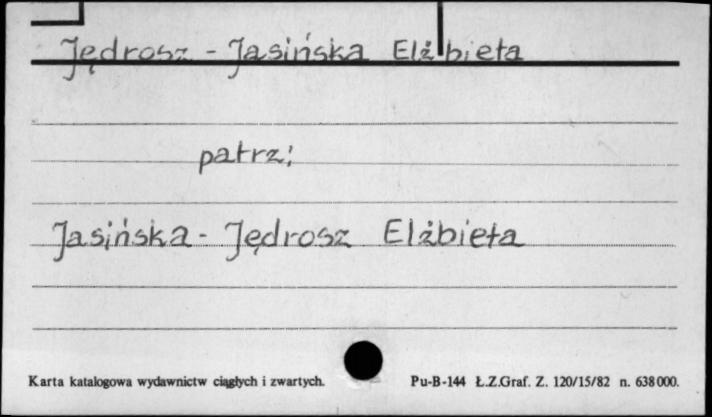 Jędrosz - Jasińska Elżbieta
patrz:
Jasińska - Jędrosz Elżbieta
Karta katalogowa wydawnictw ciągłych i zwartych.
Pu-B-144 Ł.Z.Graf. Z. 120/15/82 n. 638000.